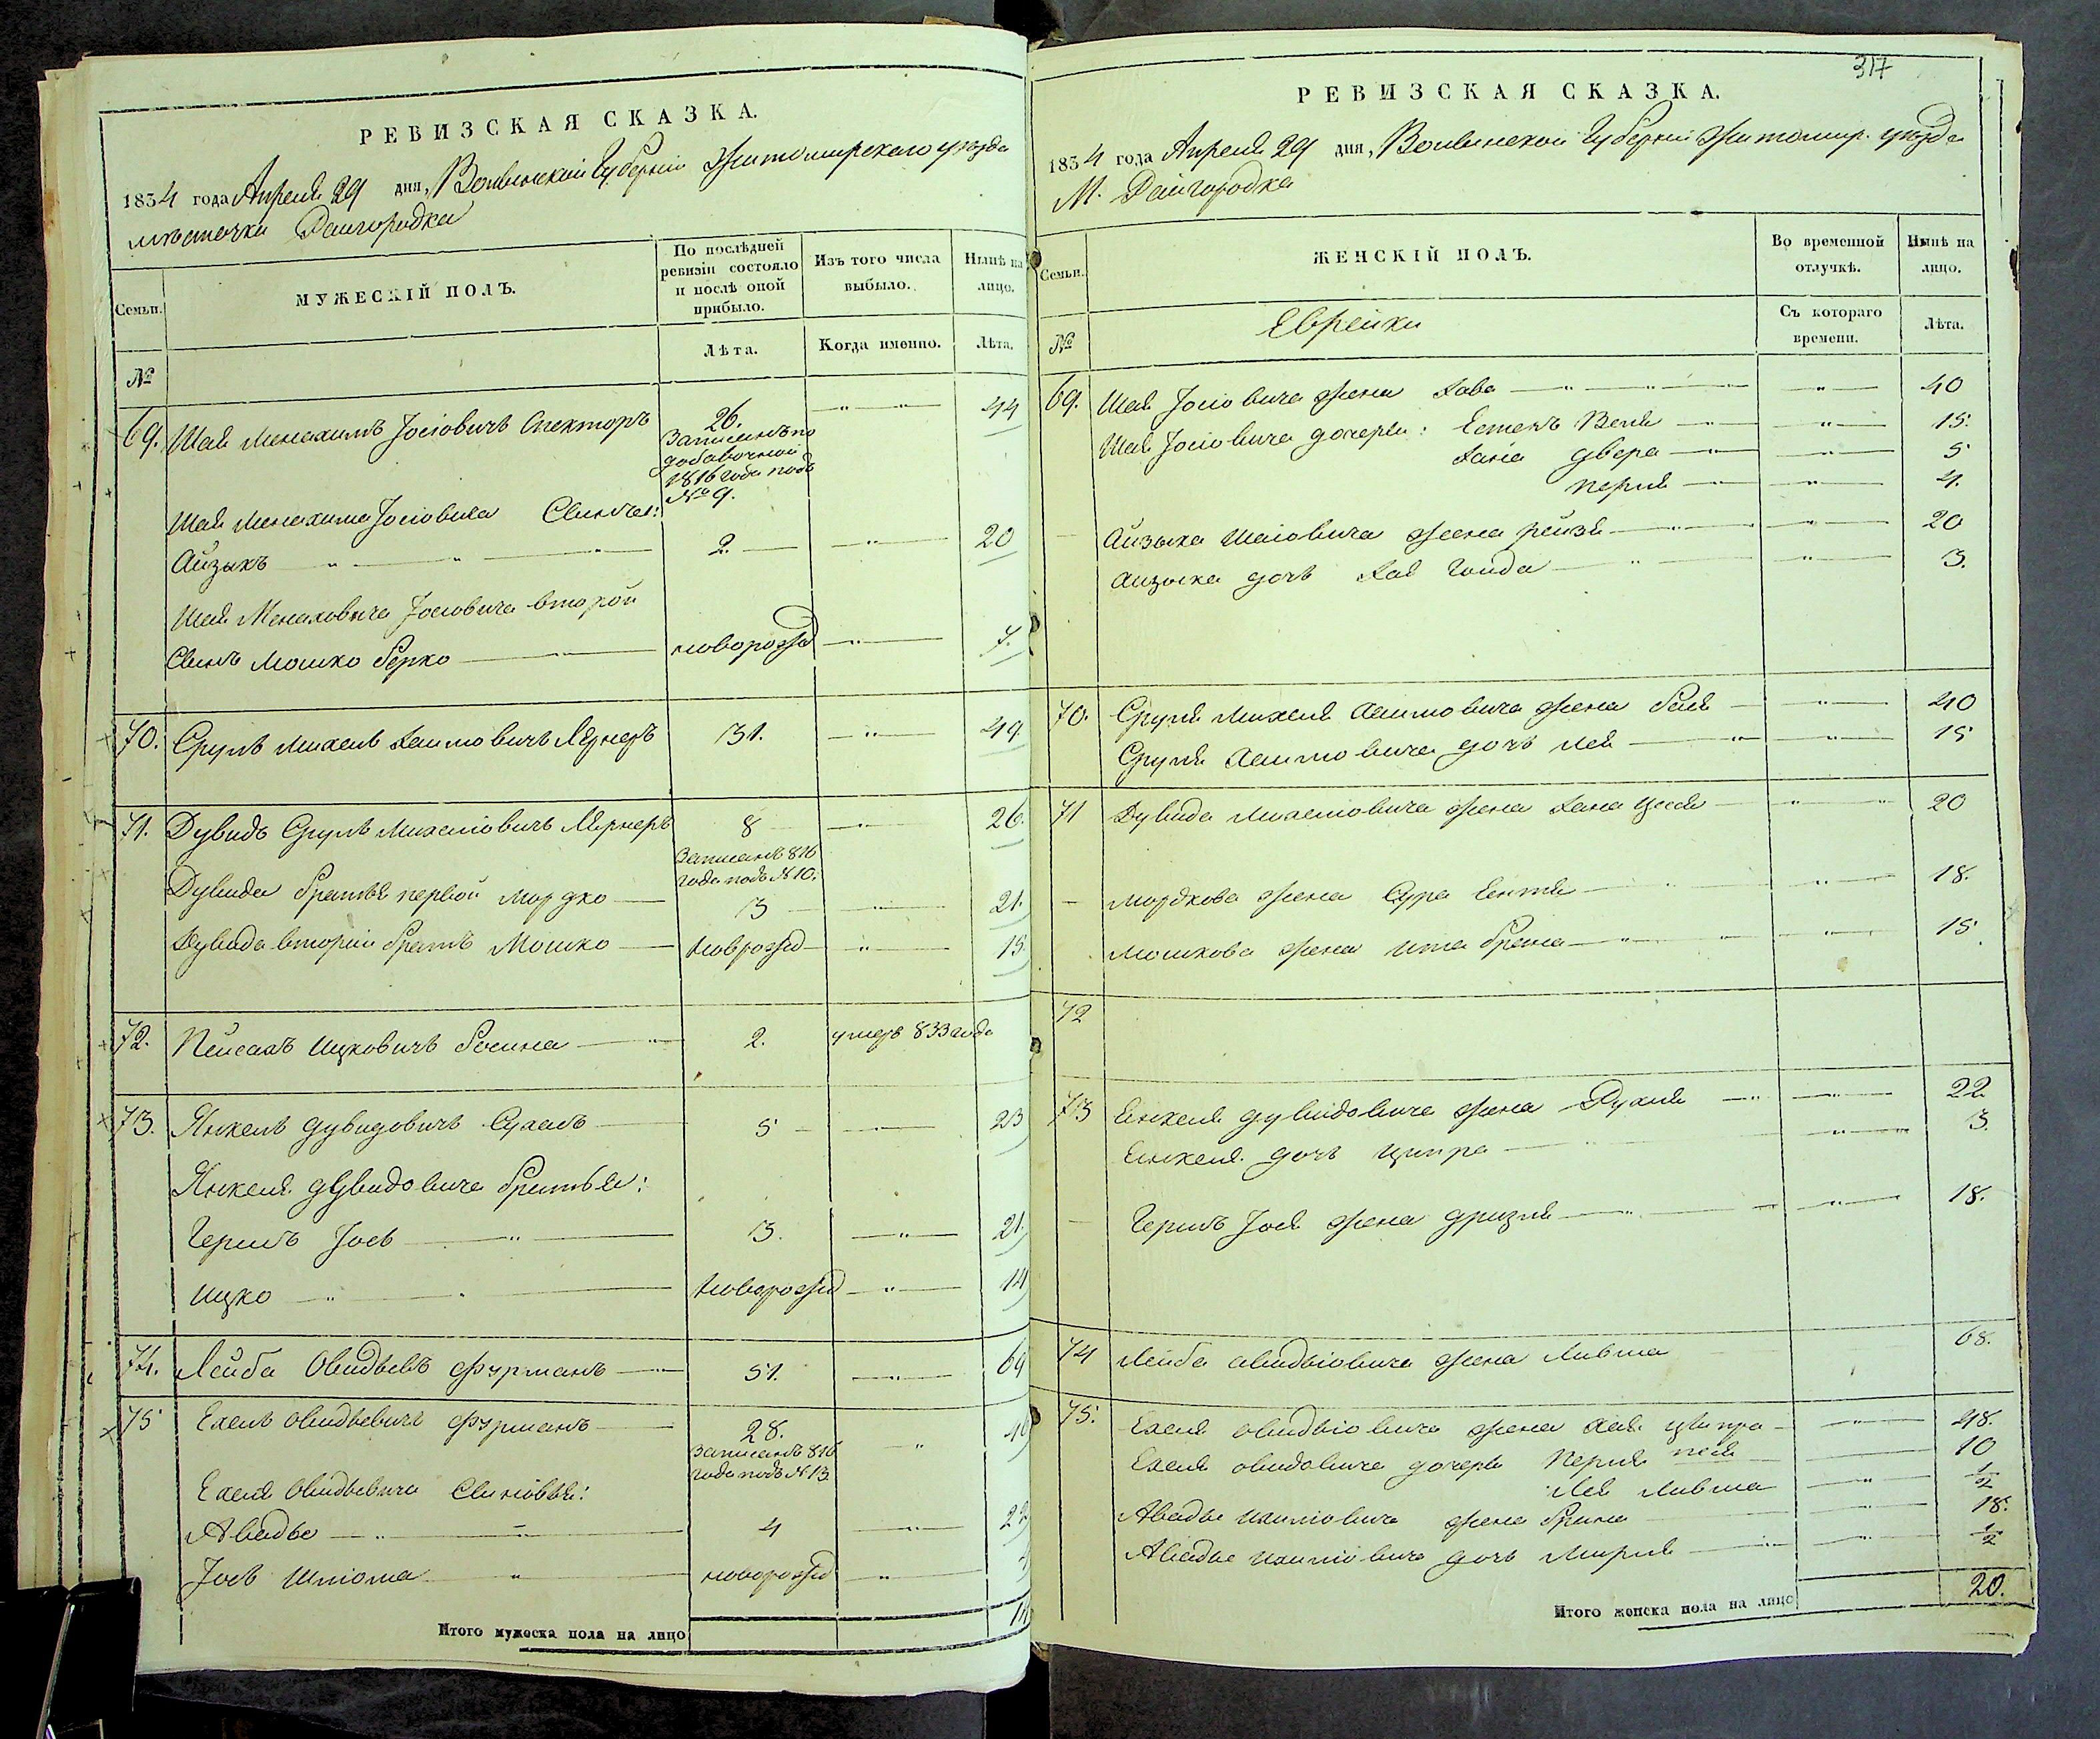 РЕВИЗСКАЯ СКАЗКА.
1834 года Апреля 29 дня, Волынской Губерніи Житомирскаго уезда
местечки Райгородка
Семьи.
МУЖЕСКІЙ ПОЛЪ.
По послѣдней ревизіи состояло и послѣ оной прибыло.
Изъ того числа выбыло.
Нынѣ на лицо.
№
Лѣта.
Когда именно.
Лѣта.
69. Шая Менахимъ Јосіовичъ Спекторъ 26. 44
Записанъ по
добавочной
1816 года подъ
№ 9.
Шая Менахима Јосіовича Сынъ:
Айзыкъ 2. 20
Шая Менаховича Јосіовича второй
Сынъ Мошко Берко новорожд 7.
70. Сруль Михель Хаимовичъ Лернеръ 31. 49
71. Дувидъ Сруль Михеліовичъ Лернеръ 8 26.
Записанъ 816
года подъ № 10.
Дувида братья первой Мордко 3 21.
Дувида вторій братъ Мошко Новрожд 15
72. Пейсахъ Ицковичъ 2. умеръ 833 года
73. Янкель Дувидовичъ Сухель 5 23
Янкеля Дувидовича братья:
Гершъ Јось 3. 21.
Ицко Новорожд 14
74. Лейба Овидьевъ Фурманъ 51. 69
75 Ехель Овидьевичъ Фурманъ 28. 46
Записанъ 816
года подъ № 13
Ехеля Овидьевича Сыновья:
Авадье 4 22
Јось Шліома новорожд
Итого мужеска пола на лицо
317
РЕВИЗСКАЯ СКАЗКА.
1834 года Апреля 29 дня, Волынской Губерніи Житомир. уезда
М. Райгородка
Семьи.
ЖЕНСКІЙ ПОЛЪ.
Во временной отлучкѣ.
Нынѣ на лицо.
№
Еврейки
Съ котораго времени.
Лѣта.
69. Шая Јосіовича жена Хава 40
Шая Јосіовича дочери: Естеръ Бейля 15.
Ханa Двера 5
Перля 4.
Айзыка Шаіовича жена Рейзя 20
Айзыка дочь Хая Голда 3.
70. Сруля Михеля Хаимовича жена Бейля 40
Сруля Хаимовича дочь Лея 15
71 Дувида Михеліовича жена Хана Цися 20
Мордкова жена Сура Ентя 18.
Мошкова жена Ита Брана 15.
72
73 Енкеля Дувидовича жена Рухля 22
Енкеля дочь Ципра 3.
Гершъ Јося жена Дризля 18.
74 Лейба Овидьіовича жена Ливша 68.
75. Ехеля Овидьіовича жена Хая Ципра 48.
Ехеля Овидовича дочери Перля Песя 10
Лея Ливша 1/2
Авадье Ихиліовича жена Брана 18.
Авадье Ихиліовича дочь Мирля 1/2
Итого женска пола на лицо 20.